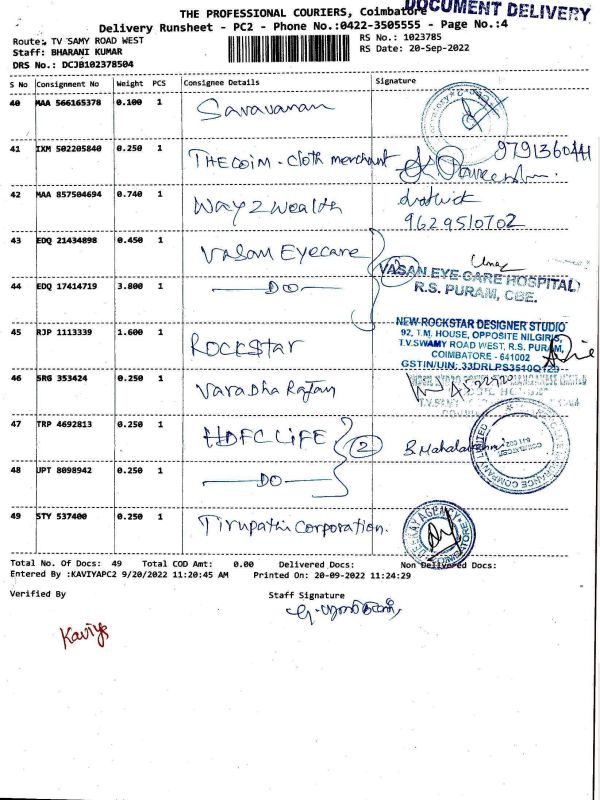 THE PROFESSIONAL COURIERS, Coimbatore
DOCUMENT DELIVERY
Delivery Runsheet - PC2 - Phone No.:0422-3505555 - Page No.:4
Route: TV SAMY ROAD WEST
RS No.: 1023785
Staff: BHARANI KUMAR
RS Date: 20-Sep-2022
DRS No.: DCJB102378504
S No Consignment No Weight PCS Consignee Details Signature
40 MAA 566165378 0.100 1 Saravanan
41 IXM 502205840 0.250 1 THECOIM - Cloth merchant 9791360441
42 MAA 857504694 0.740 1 Way2Wealth
9629510702
43 EDQ 21434898 0.450 1 Vasan Eyecare
VASAN EYE CARE HOSPITAL
R.S. PURAM, CBE.
44 EDQ 17414719 3.800 1 DO
45 RJP 1113339 1.600 1 ROCKStar
NEW ROCKSTAR DESIGNER STUDIO
92, T.M. HOUSE, OPPOSITE NILGIRIS,
T.V.SWAMY ROAD WEST, R.S. PURAM,
COIMBATORE - 641002
GSTIN/UIN: 33DRLPS3510Q1Z9
46 SRG 353424 0.250 1 Varadha Rajan
47 TRP 4692813 0.250 1 HDFC LIFE 2 B. Mahalakshmi
48 UPT 8098942 0.250 1 DO
49 STY 537400 0.250 1 Tirupathi Corporation.
Total No. Of Docs: 49 Total COD Amt: 0.00 Delivered Docs: Non Delivered Docs:
Entered By :KAVIYAPC2 9/20/2022 11:20:45 AM Printed On: 20-09-2022 11:24:29
Verified By Staff Signature
Kaviya